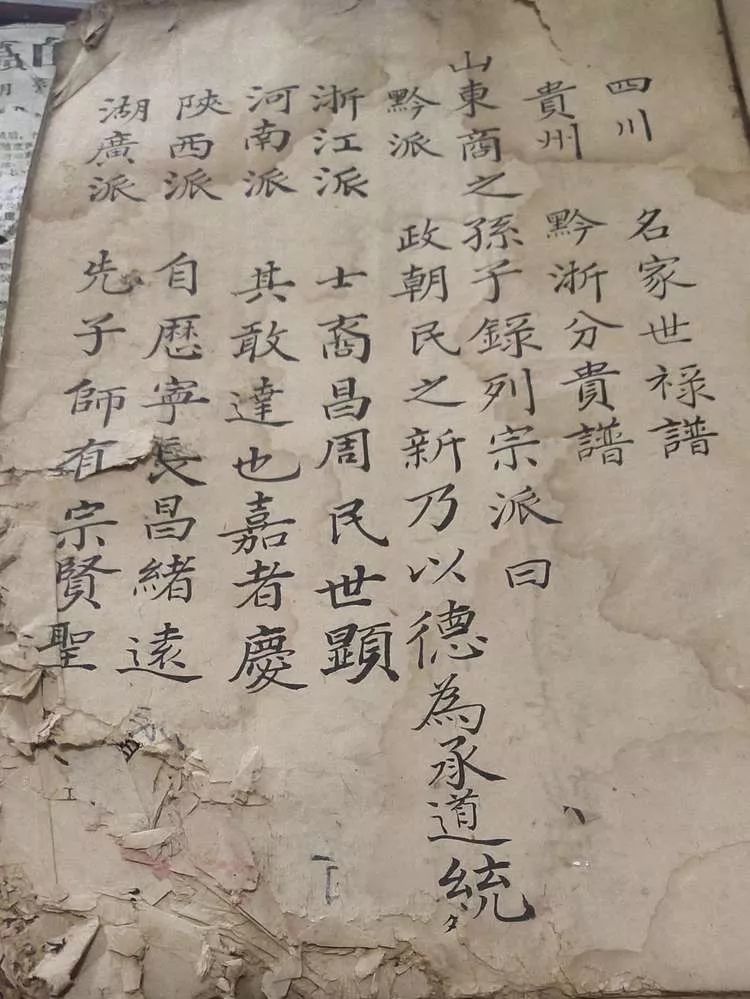 四川 名家世禄譜
貴州 黔浙分貴譜
山東商之孫子錄列宗派曰
黔派 政朝民之新乃以德為承道統
浙江派 士裔昌周民世顕
河南派 其敢達也嘉者慶
陝西派 自歷寧長昌緒遠
湖廣派 先子師有宗賢聖